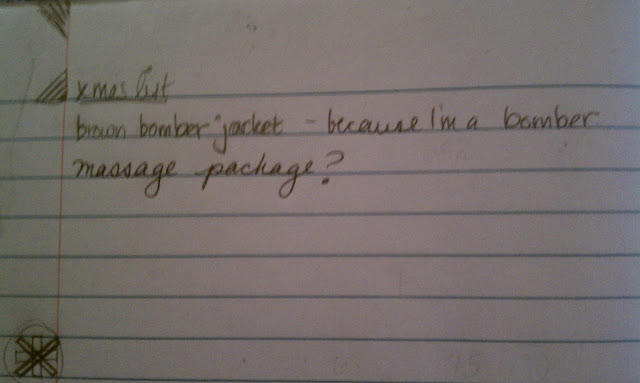 xmas list
brown bomber jacket - because I'm a bomber
massage package?